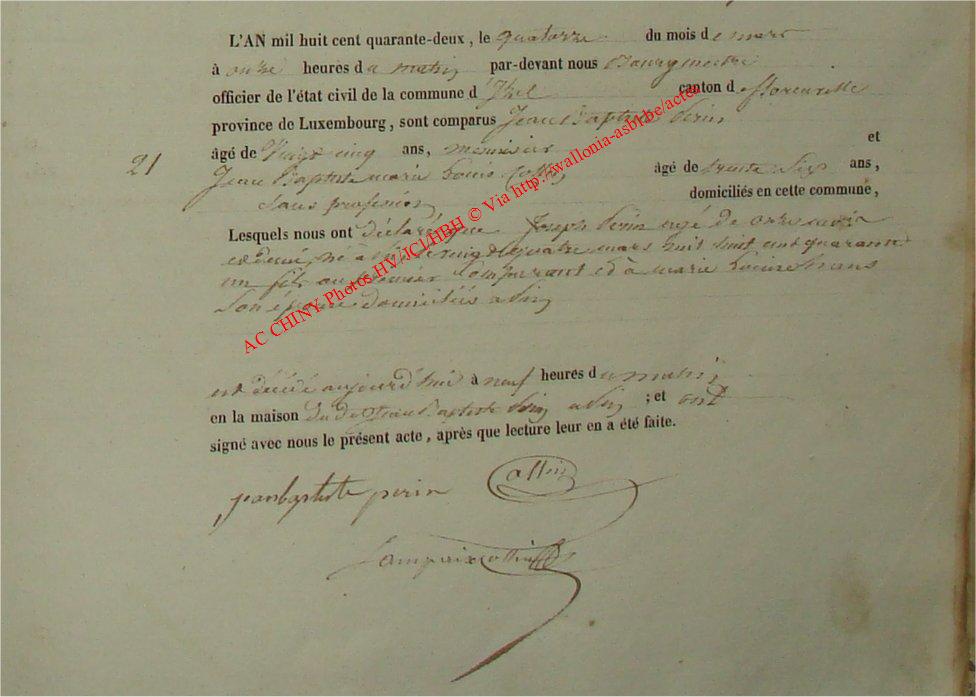 L'AN mil huit cent quarante-deux, le quatorze du mois de mars
à onze heures du matin par-devant nous Bourgmestre
officier de l'état civil de la commune d'Izel canton de florenville
province de Luxembourg, sont comparus Jean Baptiste perin
âgé de vingt cinq ans, menuisier et
21
Jean Baptiste marie Louis âgé de trente six ans,
sans profession domiciliés en cette commune,
Lesquels nous ont déclaré que Joseph perin agé de onze
né à vingt quatre mars mil huit cent quarante
un fils au premier comparant et à marie
son épouse domiciliés
est décédé aujourd'hui à neuf heures du matin
en la maison du dt Jean Baptiste perin ; et ont
signé avec nous le présent acte, après que lecture leur en a été faite.
jean baptiste perin
AC CHINY Photos HV/JCJ/HBH © Via http://wallonia-asbl.be/actes